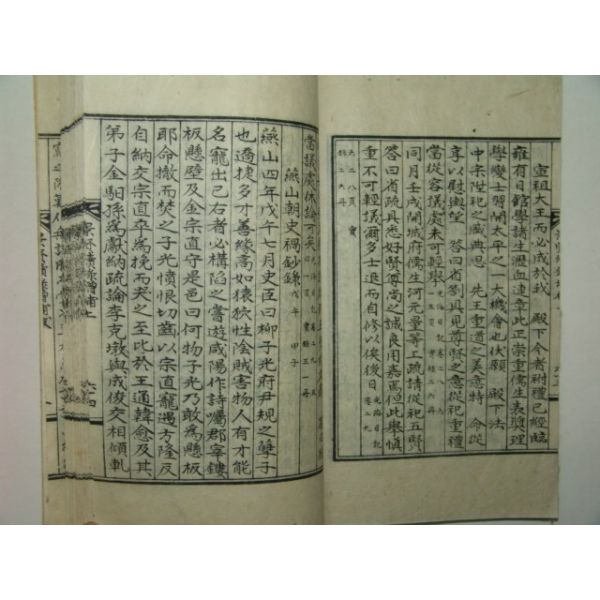 宣祖大王而必成於我 殿下今者祔禮已經臨
雍有日館學諸生瀝血連章此正崇重儒生表獎理
學變士習開太平之一大機會也伏願 殿下法
中宗陞祀之盛典思 先王重道之美意特 命從
享以慰輿望 答曰省劄具見尊賢之意從祀重禮
當從容議處未可輕擧
同月戊申開城府儒生河元量等上疏請從祀五賢
答曰省疏具悉好賢尊尚之誠良用嘉焉但此擧愼
重不可輕議爾多士退而自修以俟後日
當議處休論可矣
燕山朝史禍鈔錄 戊午 甲子
燕山四年戊午七月史臣曰柳子光府尹規之孼子
也驕捷多才善緣高如猿狖性陰賊害物人有才能
名寵出己右者必構陷之嘗遊咸陽作詩囑郡宰鏤
板懸壁及金宗直守是邑曰何物子光乃敢爲懸板
耶命撤而焚之子光憤恨切齒以宗直寵遇方隆反
自納交宗直卒爲挽而哭之至比於王通韓愈及其
弟子金馹孫爲獻納疏論李克墩與成俊交相傾軋